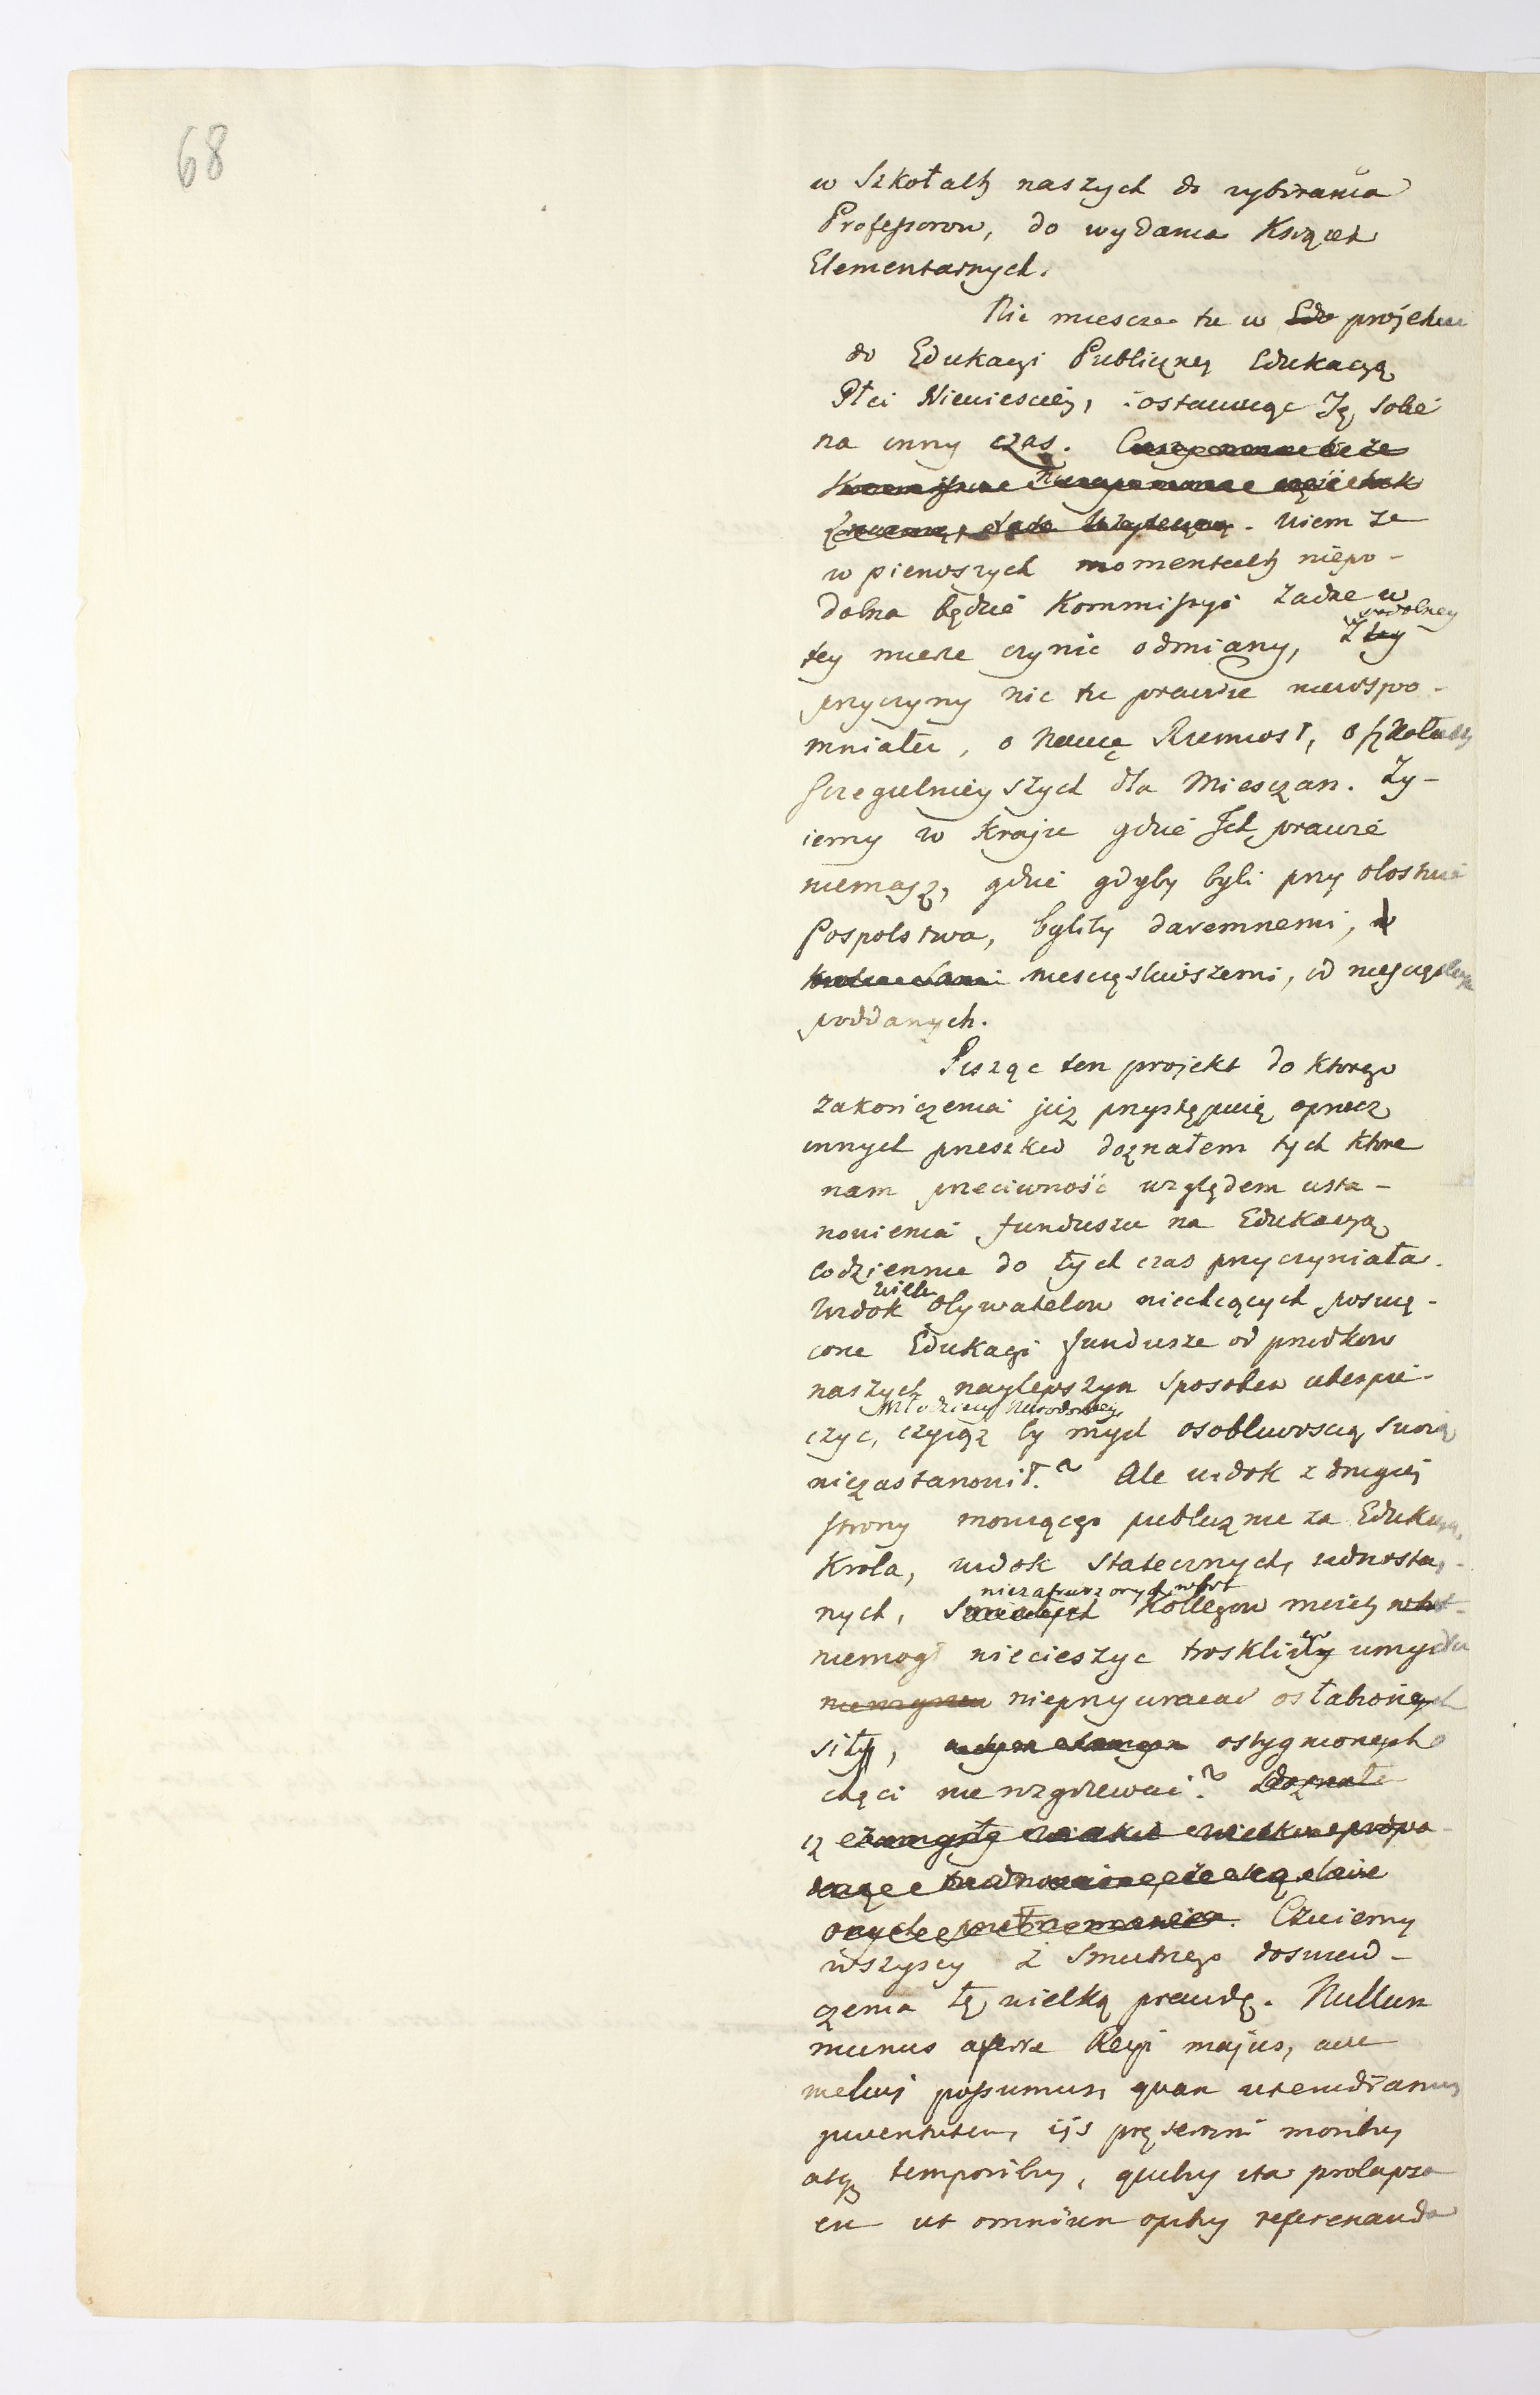 68
w Szkołach naszych do wybrania
Professorow, do wydania Xiążek
Elementarnych.
Nie mieszcze tu w Edu projektu
do Edukacyi Publiczney Edukacyą
Płci Niewiesciey, zostawuiąc Ją sobie
na inny czas.
Wiem ze
w pierwszych momentach niepo-
dobna będzie Kommissyi zadne w
podobney
tey mierze czynic odmiany, Z tey
przyczyny nic tu prawie niewspo-
mniałem, o Naucę Rzemiosł, o szkołach
szczegulnieyszych dla Miesczan. Zy-
iemy w Kraju gdzie Ich prawie
niemasz, gdzie gdyby byli przy
Pospolstwa, byliby daremnemi,
niesczęsliwszemi, od
poddanych.
Pisząc ten projekt do ktorego
zakończenia już przystępuię oprucz
innych przeszkod doznałem tych ktore
nam przeciwność względem usta-
nowienia funduszu na Edukacyą
codziennie do tych czas przyczyniała.
wielu
Widok Obywatelow niechcących poswię-
cone Edukacyi fundusze od przodkow
naszych naylepszym sposobem ubespie-
Młodziezy Narodowey
czyc, czyiąz by mysl osobliwoscią swoią
niezastanowił? Ale widok z drugiey
strony mowiącego publicznie za Edukacyą
Krola, widok statecznych, iednosta-
niezastraszonych
nych, Smiałych Kollegow moich
niemogł niecieszyc troskliwy umysłu
nieprzywracac osłabionych
siły, ostygnionych
chęci nie rozgrzewać?
Czuiemy
wszyscy z smutnego doswiad-
czenia tę wielką prawdę. Nullum
munus aferre Reyp majus, aut
melius possumus, quam ut erudiamus
juventutem, ijs pręsertim moribus
atq temporibus, quibus ita prolapsa
est ut omnium opibus referenanda